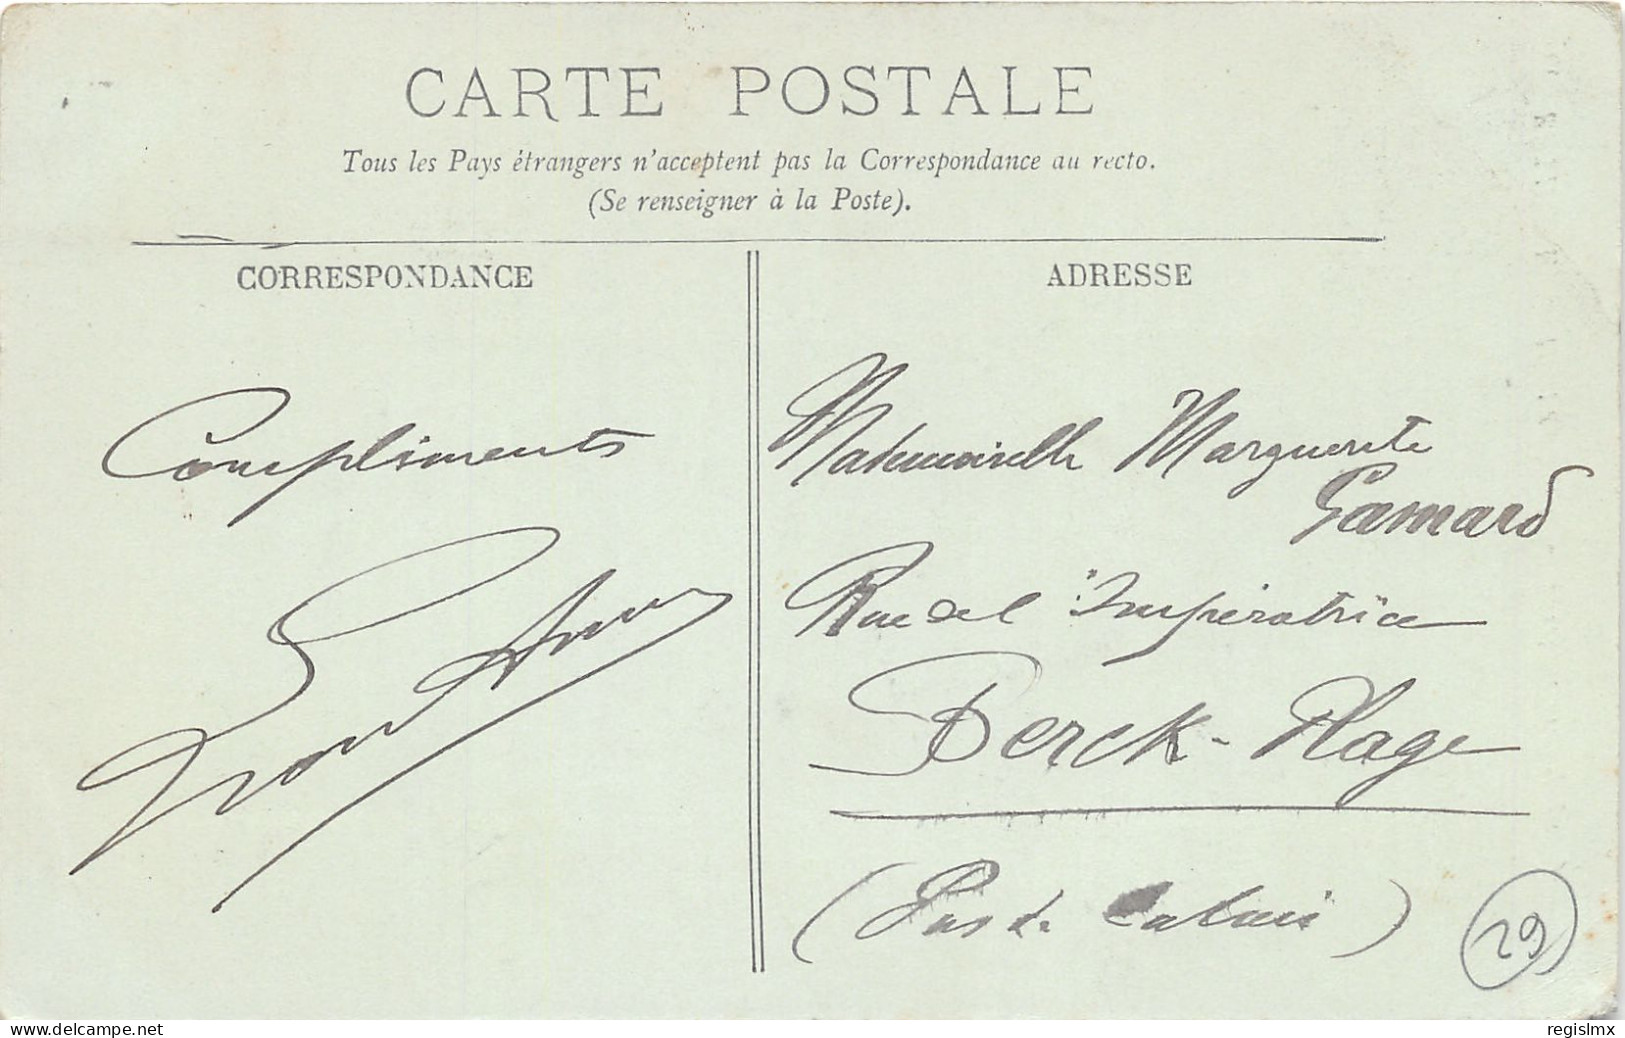 CARTE POSTALE
Tous les Pays étrangers n'acceptent pas la Correspondance au recto.
(Se renseigner à la Poste).
CORRESPONDANCE
Compliments
ADRESSE
Mademoiselle Marguerite
Gamard
Rue de l'Impératrice
Berck-Plage
(Pas de Calais)
29
www.delcampe.net
regislmx